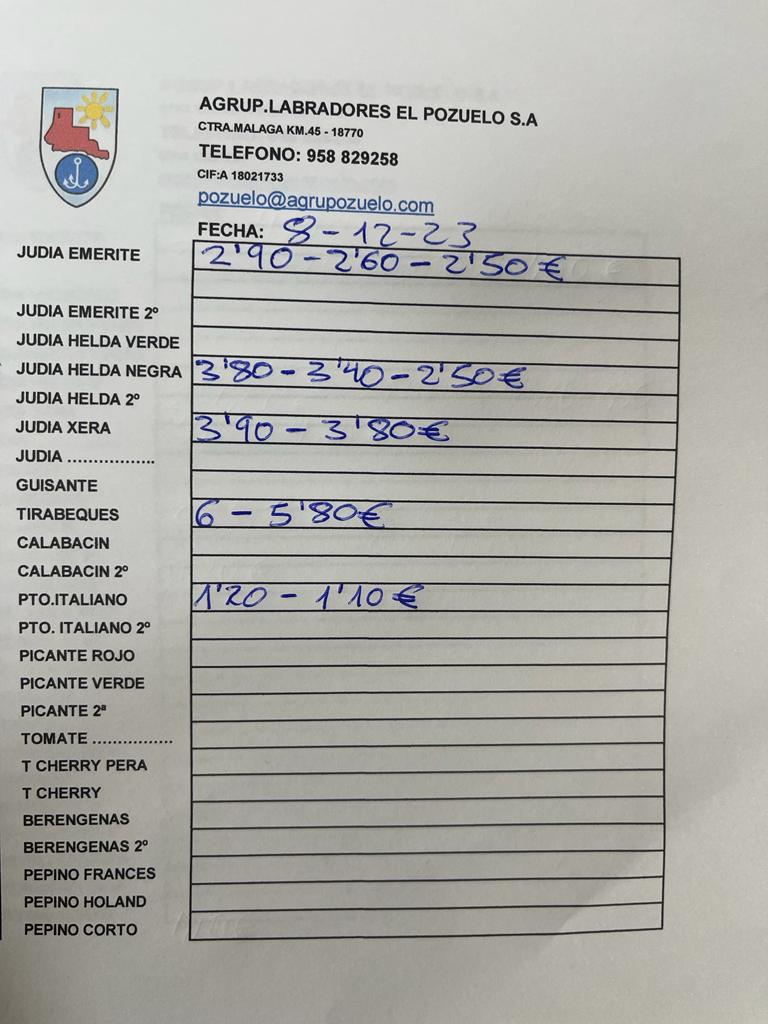 AGRUP.LABRADORES EL POZUELO S.A
CTRA.MALAGA KM.45 - 18770
TELEFONO: 958 829258
CIF:A 18021733
pozuelo@agrupozuelo.com
FECHA: 8-12-23
JUDIA EMERITE 2'90 - 2'60 - 2'50 €
JUDIA EMERITE 2º
JUDIA HELDA VERDE
JUDIA HELDA NEGRA 3'80 - 3'40 - 2'50 €
JUDIA HELDA 2º
JUDIA XERA 3'90 - 3'80 €
JUDIA .................
GUISANTE
TIRABEQUES 6 - 5'80 €
CALABACIN
CALABACIN 2º
PTO.ITALIANO 1'20 - 1'10 €
PTO. ITALIANO 2º
PICANTE ROJO
PICANTE VERDE
PICANTE 2ª
TOMATE ................
T CHERRY PERA
T CHERRY
BERENGENAS
BERENGENAS 2º
PEPINO FRANCES
PEPINO HOLAND
PEPINO CORTO